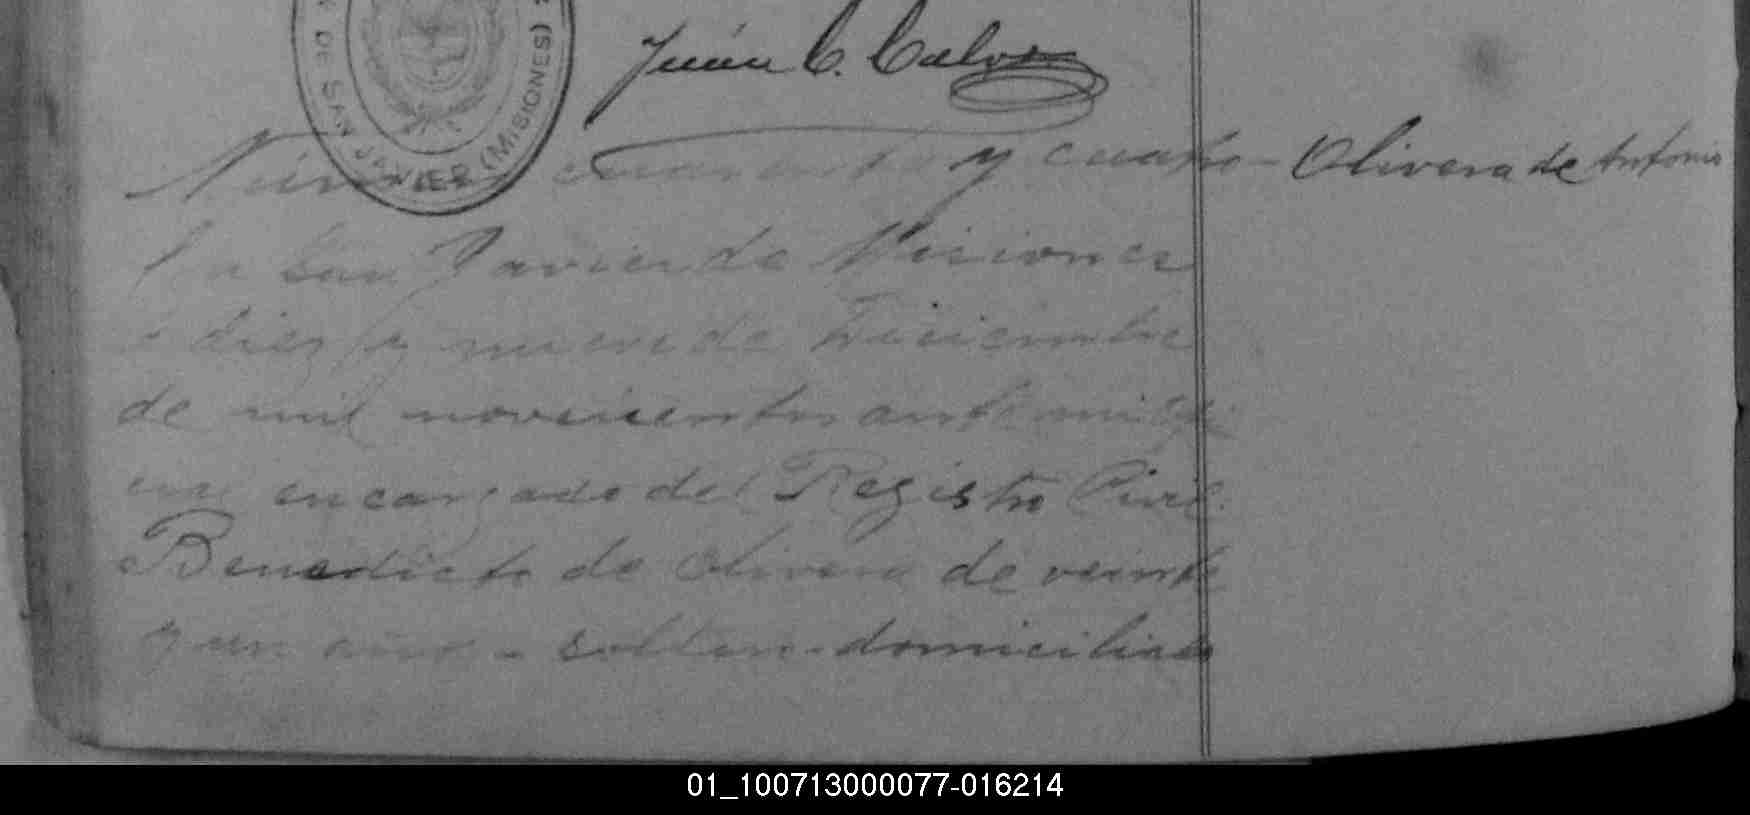 DE SAN JAVIER (MISIONES)
Juan C. Calvo
cuarenta y cuatro - Olivera de Antonio
En San Javier de Misiones
a diez y nueve de Diciembre
de mil novecientos ante mi
encargado del Registro Civil
Benedicto de Olivera de veinte
y un años - soltero - domiciliado
01_100713000077-016214